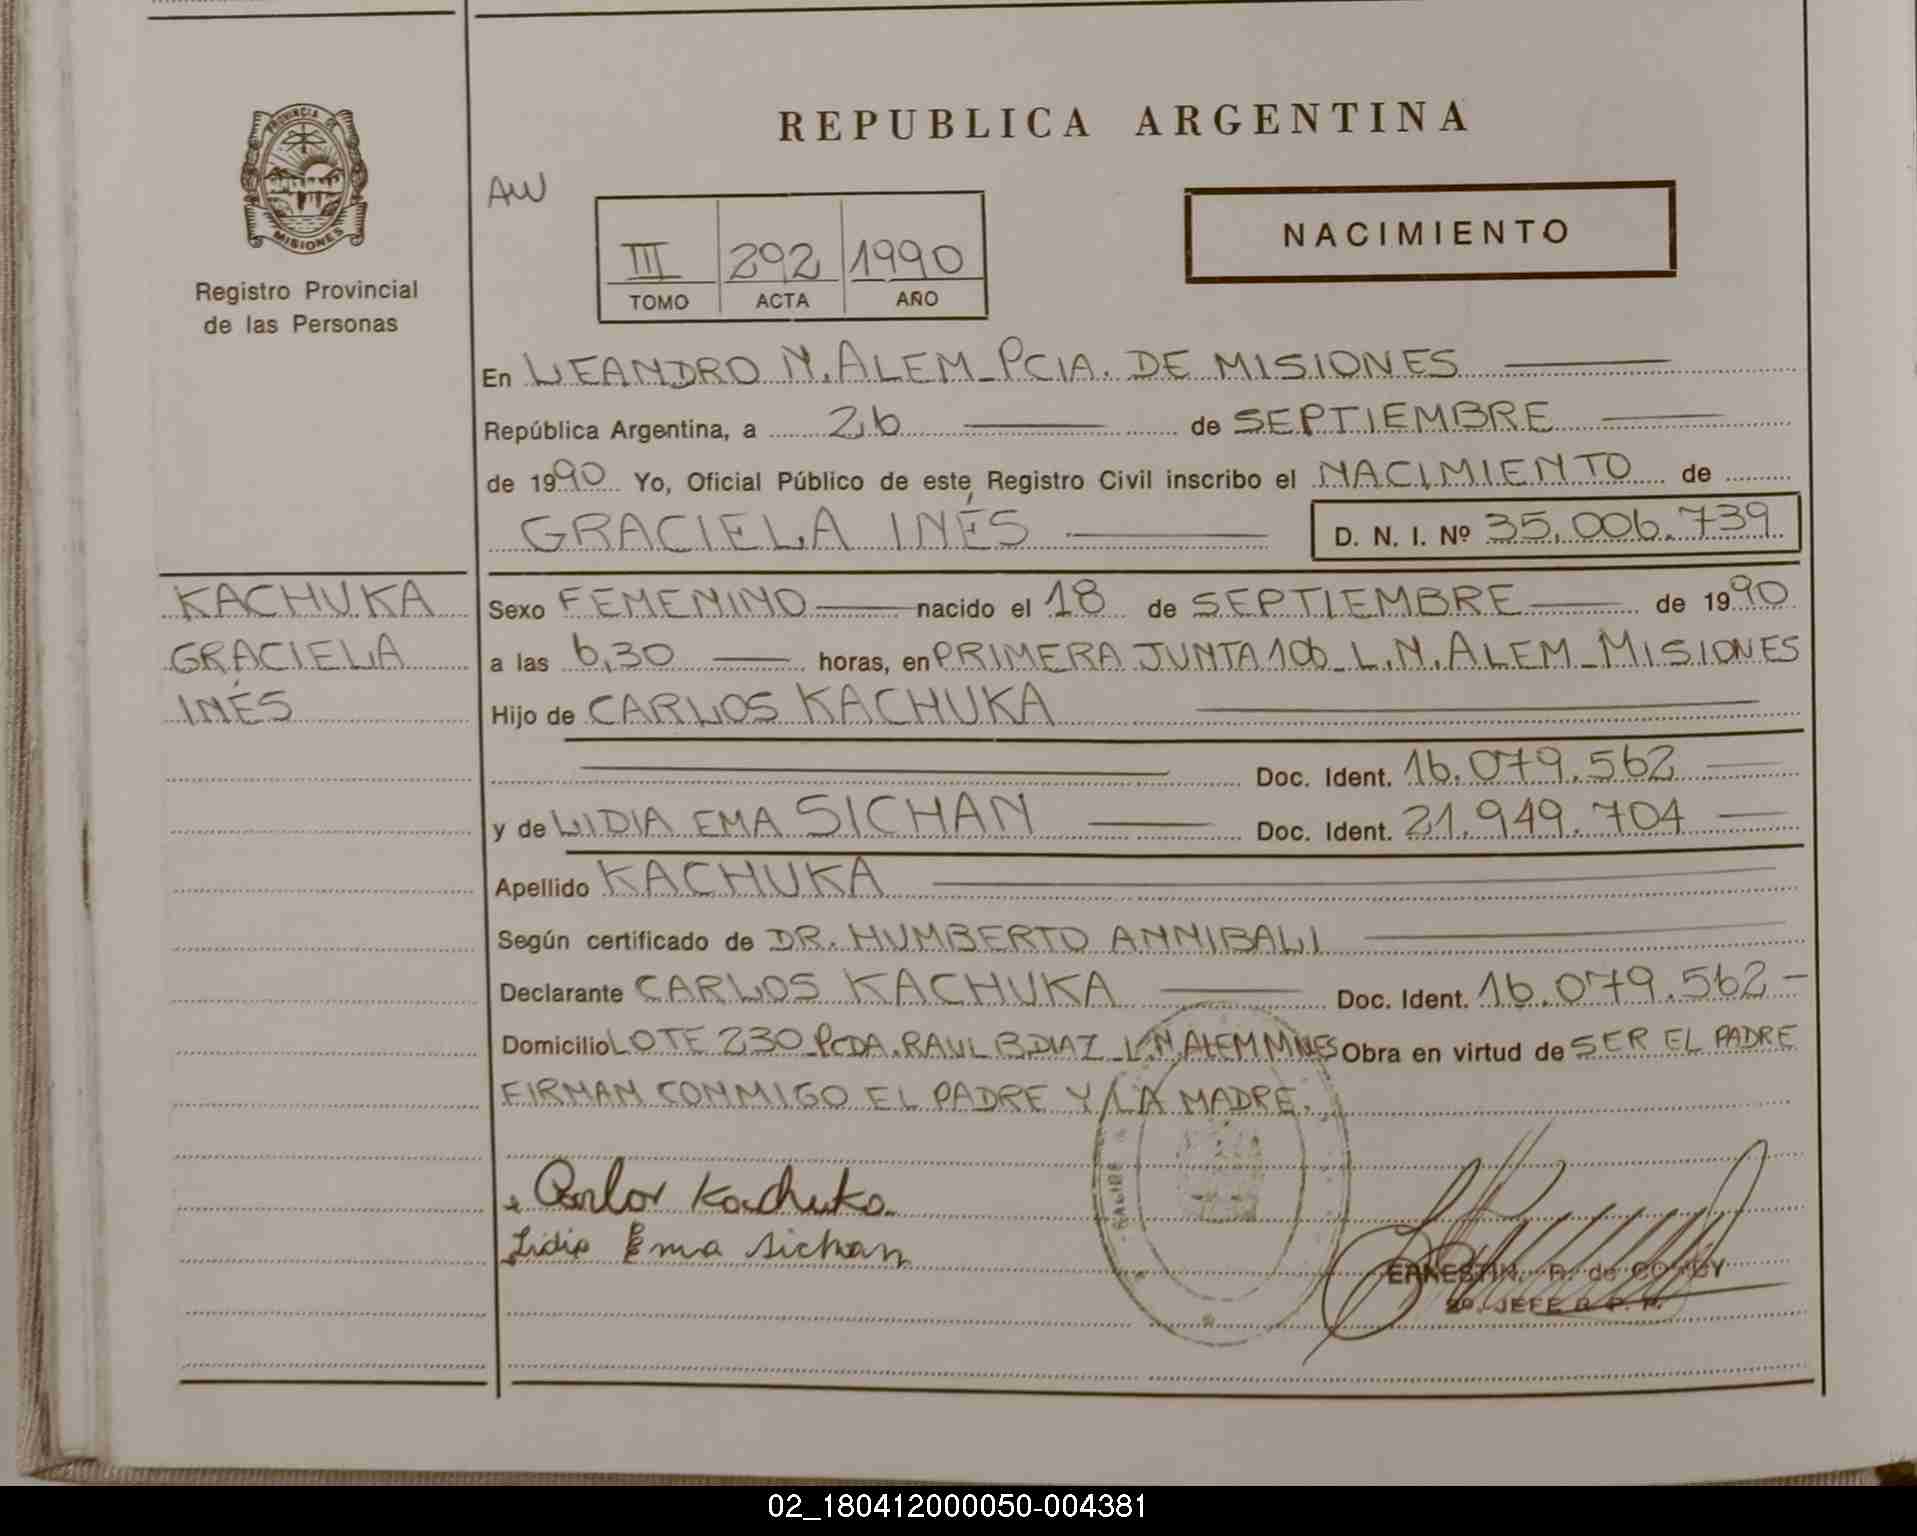 PROVINCIA DE
MISIONES
Registro Provincial
de las Personas
REPUBLICA ARGENTINA
AW
III 292 1990
TOMO ACTA AÑO
NACIMIENTO
En LEANDRO N. ALEM - PCIA. DE MISIONES
República Argentina, a 26 de SEPTIEMBRE
de 1990 Yo, Oficial Público de este Registro Civil inscribo el NACIMIENTO de
GRACIELA INÉS D. N. I. Nº 35.006.739
KACHUKA
GRACIELA
INÉS
Sexo FEMENINO nacido el 18 de SEPTIEMBRE de 1990
a las 6,30 horas, en PRIMERA JUNTA 106 - L.N. ALEM - MISIONES
Hijo de CARLOS KACHUKA
Doc. Ident. 16.079.562
y de LIDIA EMA SICHAN Doc. Ident. 21.949.704
Apellido KACHUKA
Según certificado de DR. HUMBERTO ANNIBALI
Declarante CARLOS KACHUKA Doc. Ident. 16.079.562 -
Domicilio LOTE 230 PCDA. RAUL B. DIAZ - L.N. ALEM MNES Obra en virtud de SER EL PADRE
FIRMAN CONMIGO EL PADRE Y LA MADRE.
Carlos Kachuka
Lidia Ema Sichan
2º. JEFE R. P. P.
02_180412000050-004381